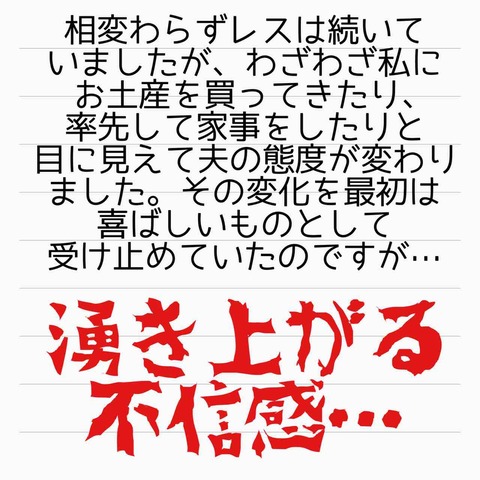 相変わらずレスは続いて
いましたが、わざわざ私に
お土産を買ってきたり、
率先して家事をしたりと
目に見えて夫の態度が変わり
ました。その変化を最初は
喜ばしいものとして
受け止めていたのですが…
湧き上がる
不信感…